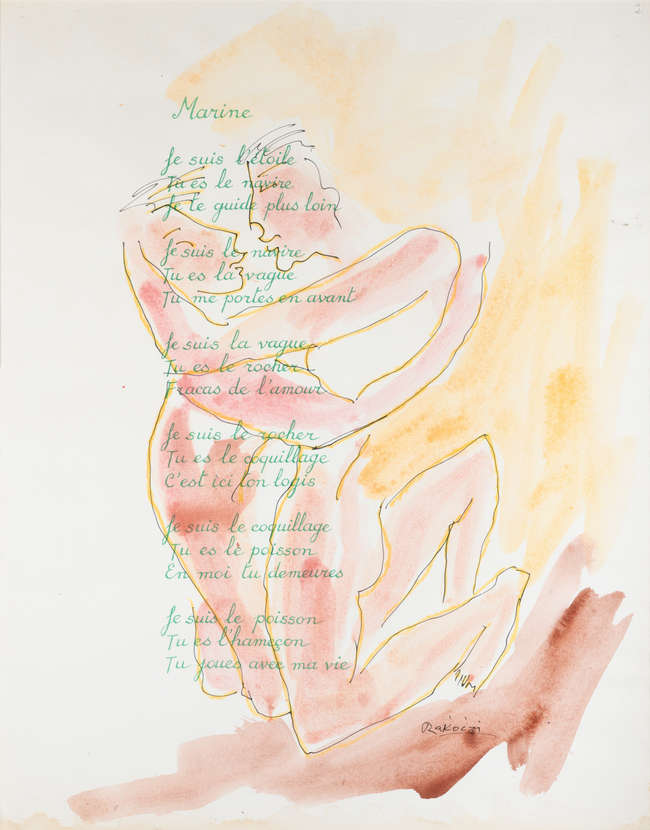 2
Marine
Je suis l'étoile
Tu es le navire
Je te guide plus loin
Je suis le navire
Tu es la vague
Tu me portes en avant
Je suis la vague
Tu es le rocher
Fracas de l'amour
Je suis le rocher
Tu es le coquillage
C'est ici ton logis
Je suis le coquillage
Tu es le poisson
En moi tu demeures
Je suis le poisson
Tu es l'hameçon
Tu joues avec ma vie
Rakóczi